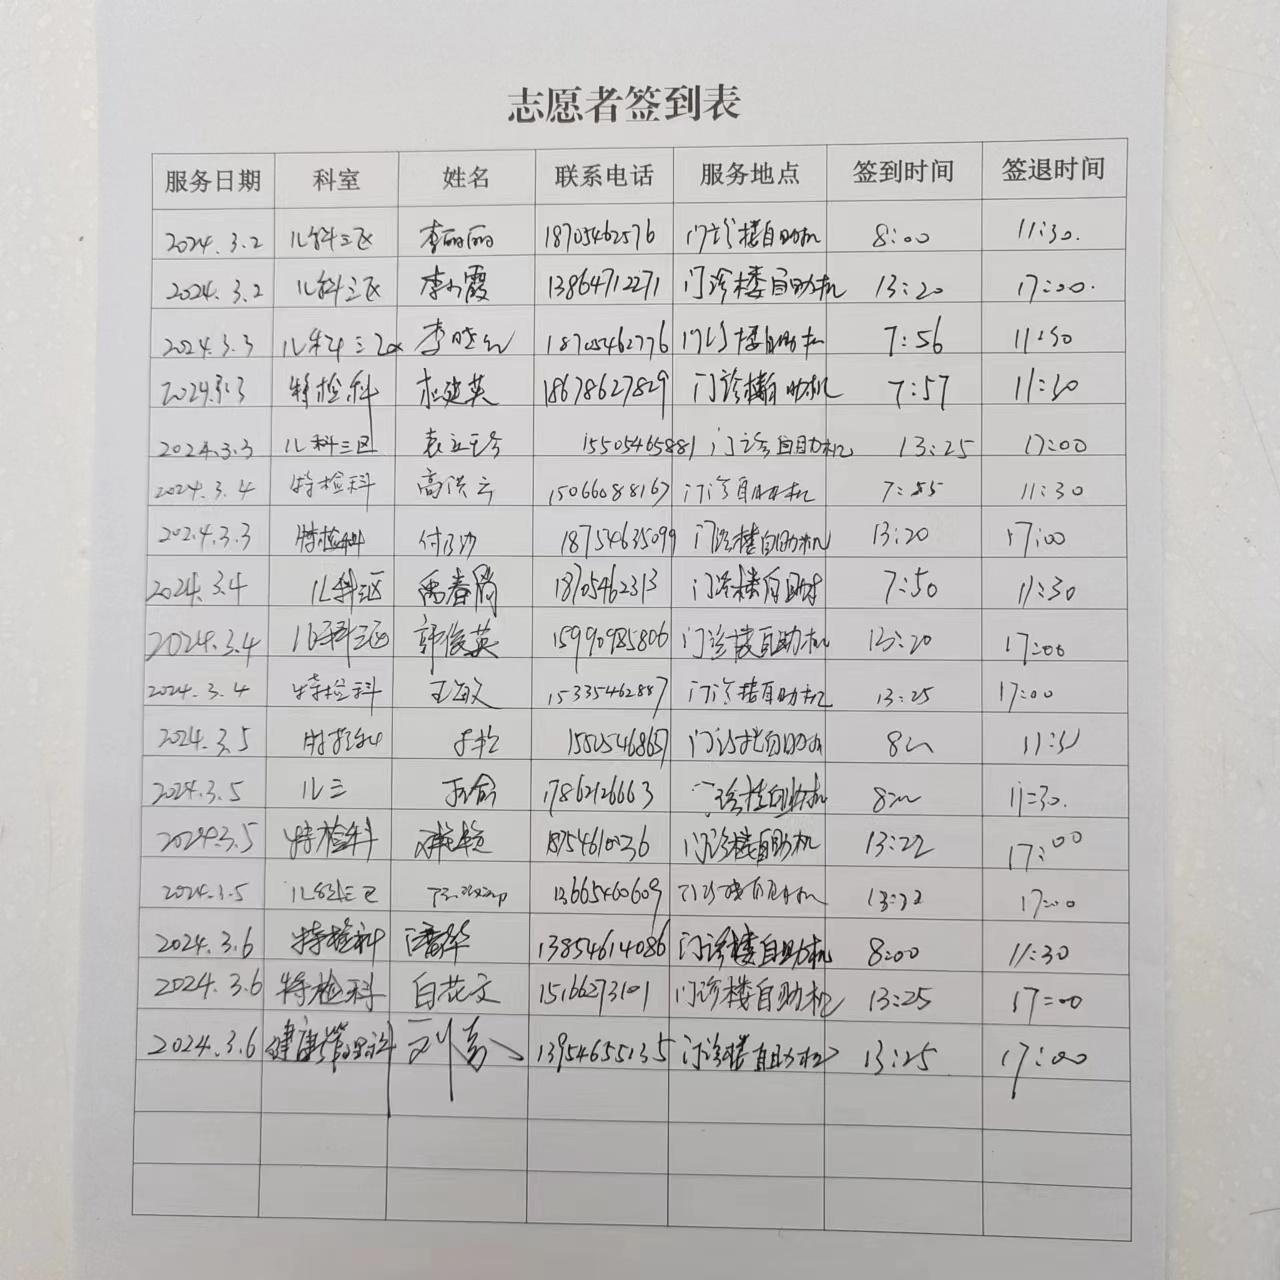 志愿者签到表
服务日期 科室 姓名 联系电话 服务地点 签到时间 签退时间
2024.3.2 儿科三区 李丽丽 18705462576 门诊楼自助机 8:00 11:30.
2024.3.2 儿科三区 李小霞 13864712271 门诊楼自助机 13:20 17:00.
2024.3.3 儿科三区 李晓红 18705462776 门诊楼自助机 7:56 11:30
2024.3.3 特检科 杜建英 18678627829 门诊楼自助机 7:57 11:30
2024.3.3 儿科三区 袁玉珍 15505465881 门诊自助机 13:25 17:00
2024.3.4 特检科 高洪云 15066088167 门诊自助机 7:55 11:30
2024.3.3 特检科 18754635099 门诊楼自助机 13:20 17:00
2024.3.4 儿科三区 禹春腾 18705462313 门诊楼自助 7:50 11:30
2024.3.4 儿科三区 郭俊英 15990985806 门诊楼自助机 13:20 17:00
2024.3.4 特检科 王海文 15335462887 门诊楼自助机 13:25 17:00
2024.3.5 特检科 门诊楼自助机 11:30
2024.3.5 儿三 17862126663 门诊楼自助机 11:30.
2024.3.5 特检科 18754610236 门诊楼自助机 13:22 17:00
2024.3.5 儿科三区 13665460609 门诊楼自助机 13:22 17:00
2024.3.6 特检科 潘华 13854614086 门诊楼自助机 8:00 11:30
2024.3.6 特检科 白花文 15166273101 门诊楼自助机 13:25 17:00
2024.3.6 健康管理科 13954655135 门诊楼自助机 13:25 17:00